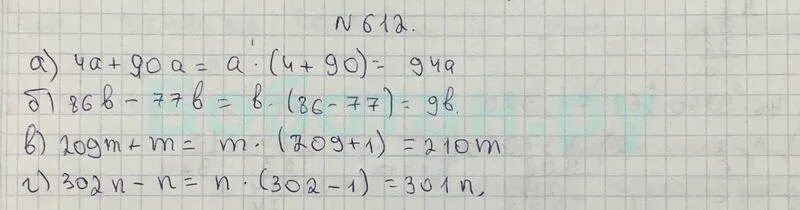 № 612.
а) 4a + 90a = a · (4 + 90) = 94a
б) 86b - 77b = b · (86 - 77) = 9b.
в) 209m + m = m · (209 + 1) = 210m
г) 302n - n = n · (302 - 1) = 301n,